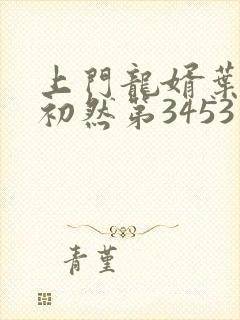 上門龍婿葉
初然第3453
青堇